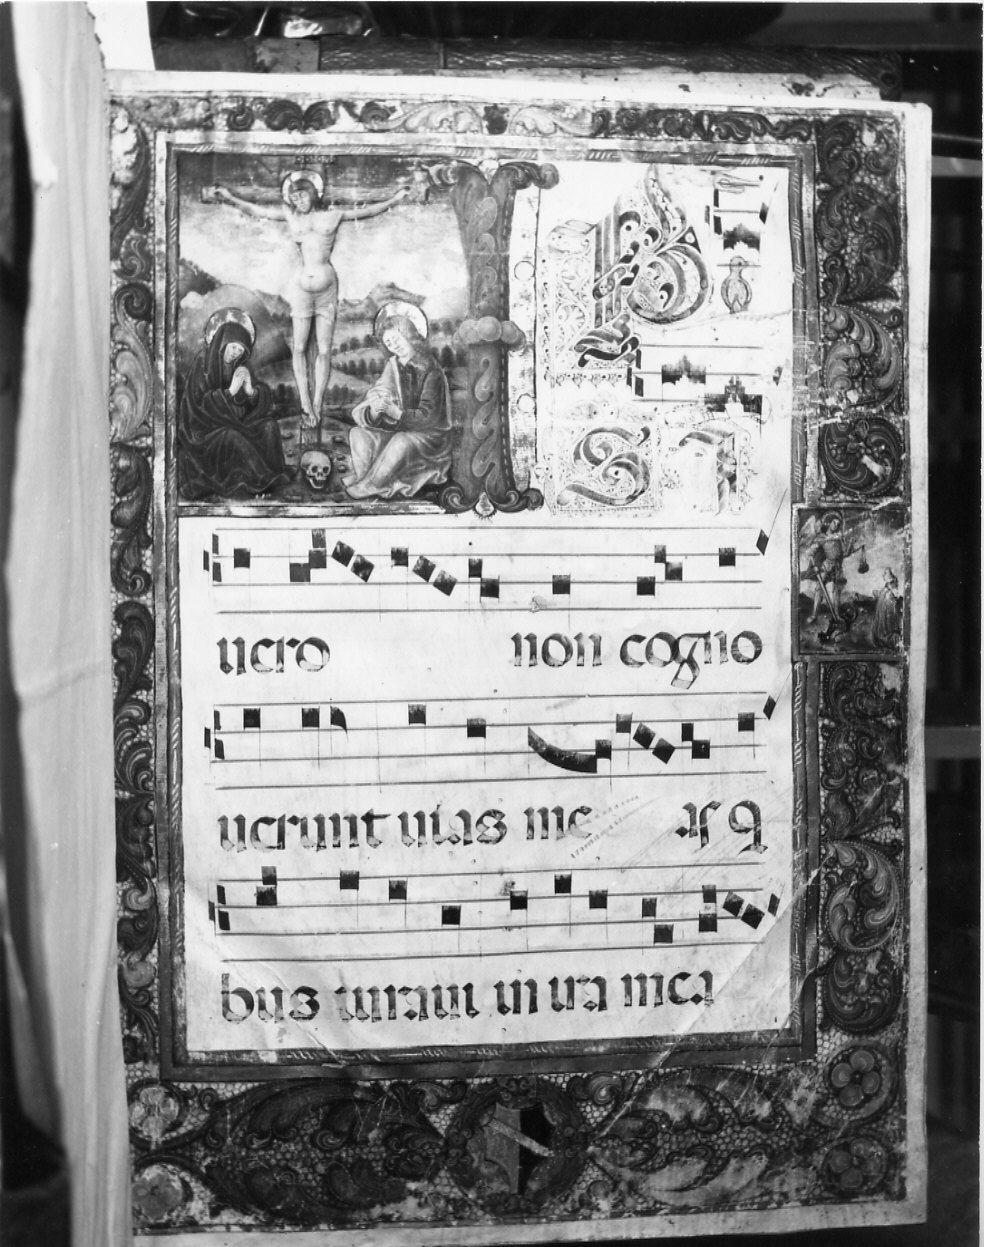 IP
SI
uero non cogno
uerunt uias me as q
bus iuraui in ira mea